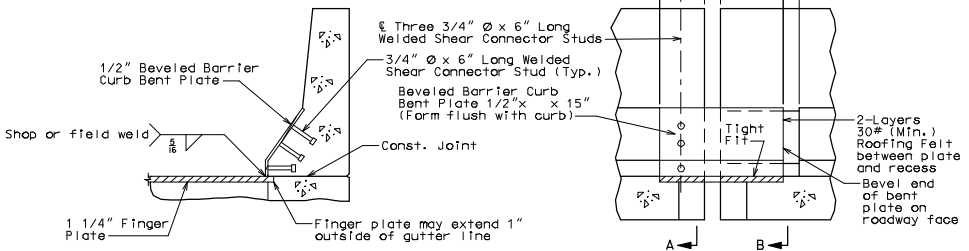 ℄ Three 3/4" Ø x 6" Long
Welded Shear Connector Studs
3/4" Ø x 6" Long Welded
Shear Connector Stud (Typ.)
1/2" Beveled Barrier
Curb Bent Plate
Beveled Barrier Curb
Bent Plate 1/2"x   x 15"
(Form flush with curb)
Shop or field weld
5
16
Const. Joint
Tight
Fit
2-Layers
30# (Min.)
Roofing Felt
between plate
and recess
Bevel end
of bent
plate on
roadway face
1 1/4" Finger
Plate
Finger plate may extend 1"
outside of gutter line
A
B